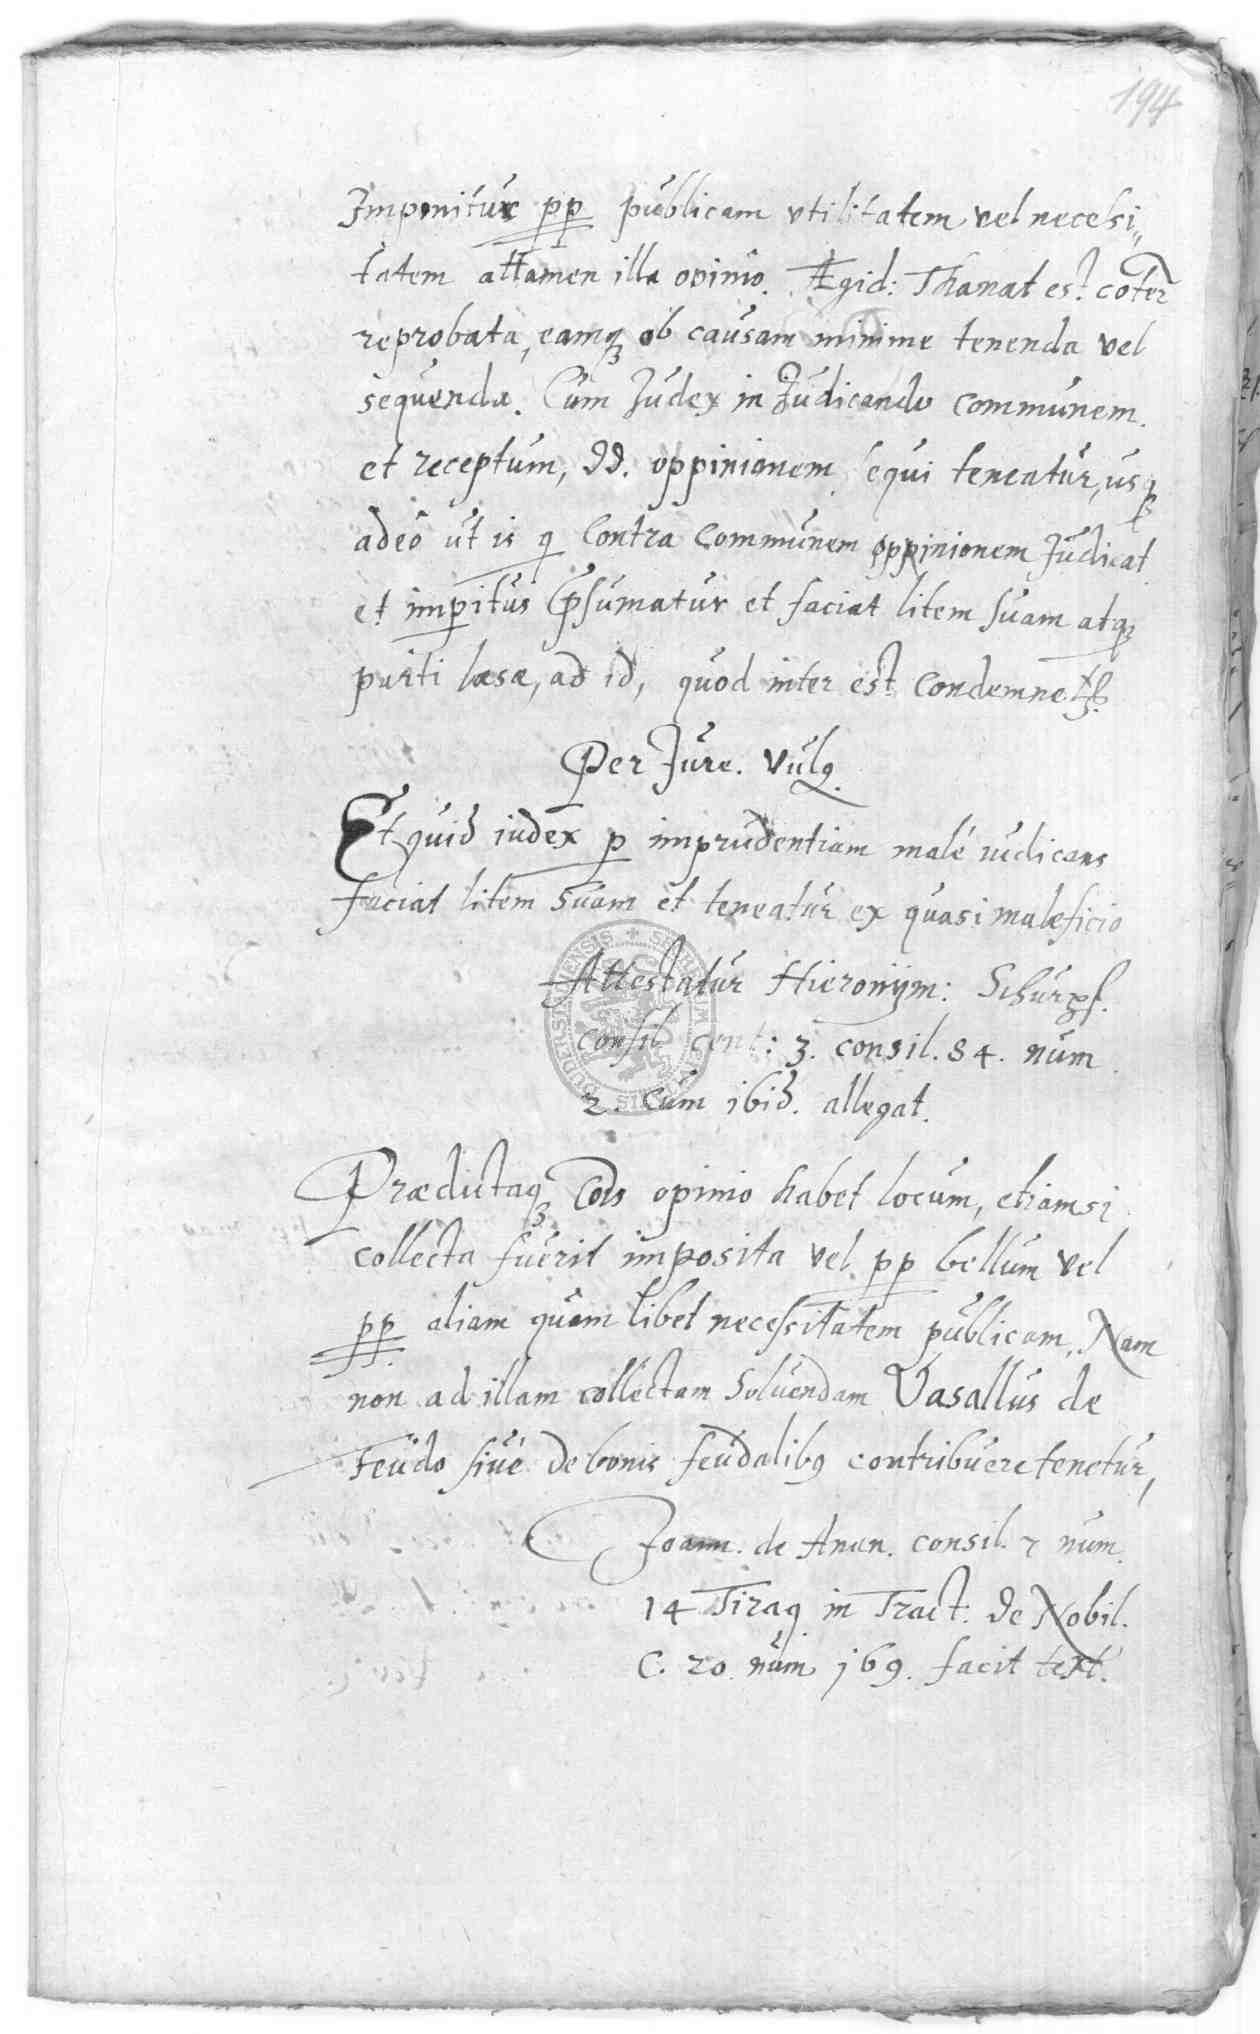 194
Imponitur pp publicam vtilitatem vel necessi„
tatem attamen illa opinio. Ægid: Thanat est coter
reprobata, eamq ob causam minime tenenda vel
sequenda. Cum Judex in Judicando communem
et receptum, DD. oppinionem sequi teneatur, usq
adeo ut is q contra communem oppinionem Judicat
et impitus Psumatur et faciat litem suam atq
parti læsæ, ad id, quod inter est condemnet.
Per Jure. Vulg.
Et quid iudex p imprudentiam malé iudicans
faciat litem suam et teneatur ex quasi maleficio
Attestatur Hieronÿm: Schurpf.
consil cent: 3. consil. 84. num
2. Cum ibid. allegat.
Prædictaq Cois opinio habet locum, etiamsi
collecta fuerit imposita vel pp bellum vel
pp aliam quam libet necessitatem publicam, Nam
non ad illam collectam Soluendam Vasallus de
Feudo siué de bonis feudalibg contribuere tenetur,
Joann. de Anan. consil. 7 num
14 Tiraq in Tract: de Nobil.
C. 20. num 169. facit text.